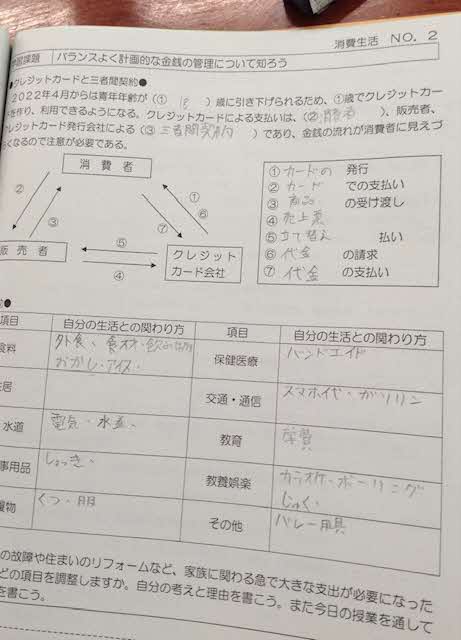 消費生活 NO. 2
習課題 バランスよく計画的な金銭の管理について知ろう
●クレジットカードと三者間契約●
2022年4月からは青年年齢が（① 18 ）歳に引き下げられるため、①歳でクレジットカー
を作り、利用できるようになる。クレジットカードによる支払いは、（② 消費者 ）、販売者、
レジットカード発行会社による（③ 三者間契約 ）であり、金銭の流れが消費者に見えづ
くなるので注意が必要である。
消費者
② ③ ① ⑦ ⑥
販売者
⑤
④
クレジット
カード会社
① カードの 発行
② カード での支払い
③ 商品 の受け渡し
④ 売上票
⑤ 立て替え 払い
⑥ 代金 の請求
⑦ 代金 の支払い
項目 自分の生活との関わり方 項目 自分の生活との関わり方
食料 外食、食材・飲み
おかし・アイス 保健医療 バンドエイド
住居 交通・通信 スマホ代・ガソリン
水道 電気・水道、 教育 学費
事用品 しょっき、 教養娯楽 カラオケ・ボーリング
じゅく、
履物 くつ・服 その他 バレー用具
の故障や住まいのリフォームなど、家族に関わる急で大きな支出が必要になった
どの項目を調整しますか。自分の考えと理由を書こう。また今日の授業を通して
を書こう。